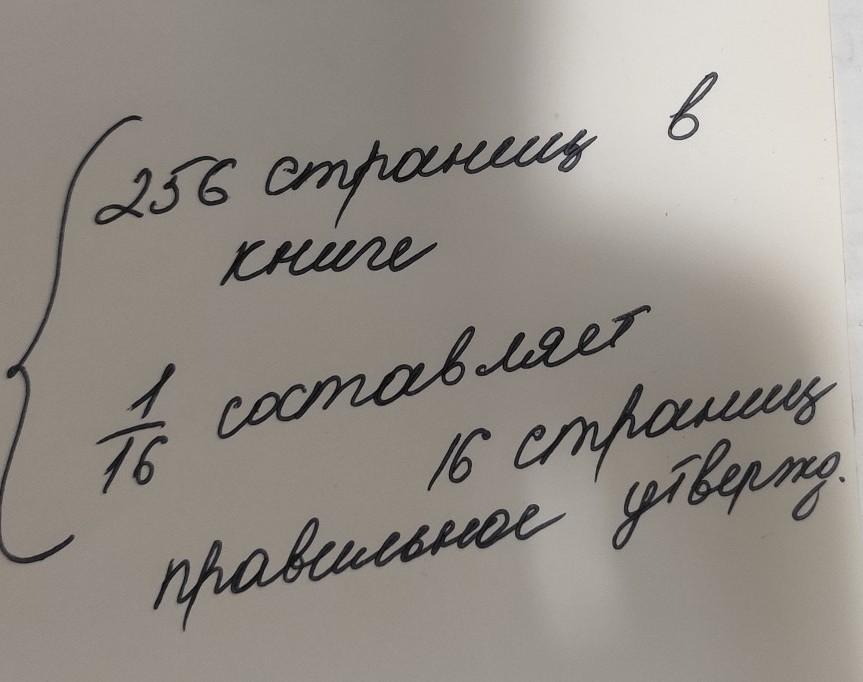 256 страниц в
книге
1/16 составляет
16 страниц
правильное утвержд.